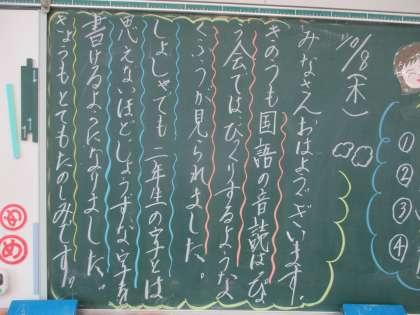 ①
②
③
④
10/8(木)
みなさんおはようございます。
きのうも国語の音読はっぴょ
う会では、びっくりするような
くふうが見られました。
しょしゃでも二年生の字とは
思えないほど、じょうずな字を
書けるようになりました。
きょうもとてもたのしみです。
め